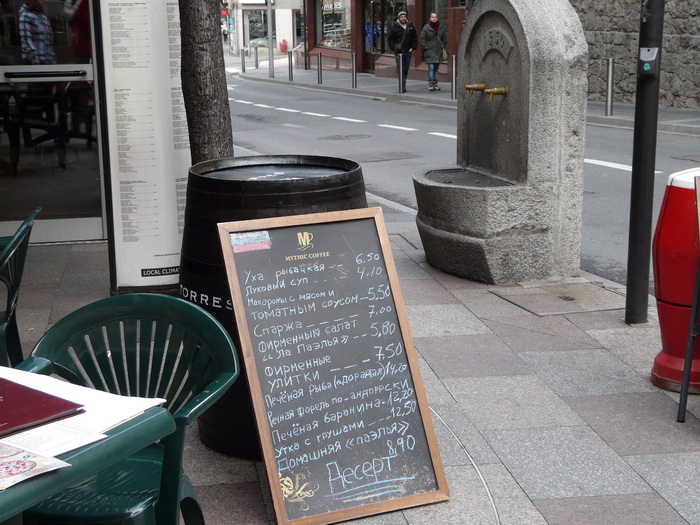 MYTHIC COFFEE
Уха рыбацкая -- -- 6,50
Луковый суп - - - 4,10
Макароны с мясом и
томатным соусом - 5,50
Спаржа - - - - - 7,00
Фирменный салат
«Ла Паэлья» - - - 5,80
Фирменные
улитки - - - - 7,50
Печёная рыба («дорада»)
Речная форель по-андоррски
Печёная баранина - 12,20
Утка с грушами - - - 12,50
Домашняя «паэлья» 8,90
Десерт
TORRES
LOCAL CLIMA